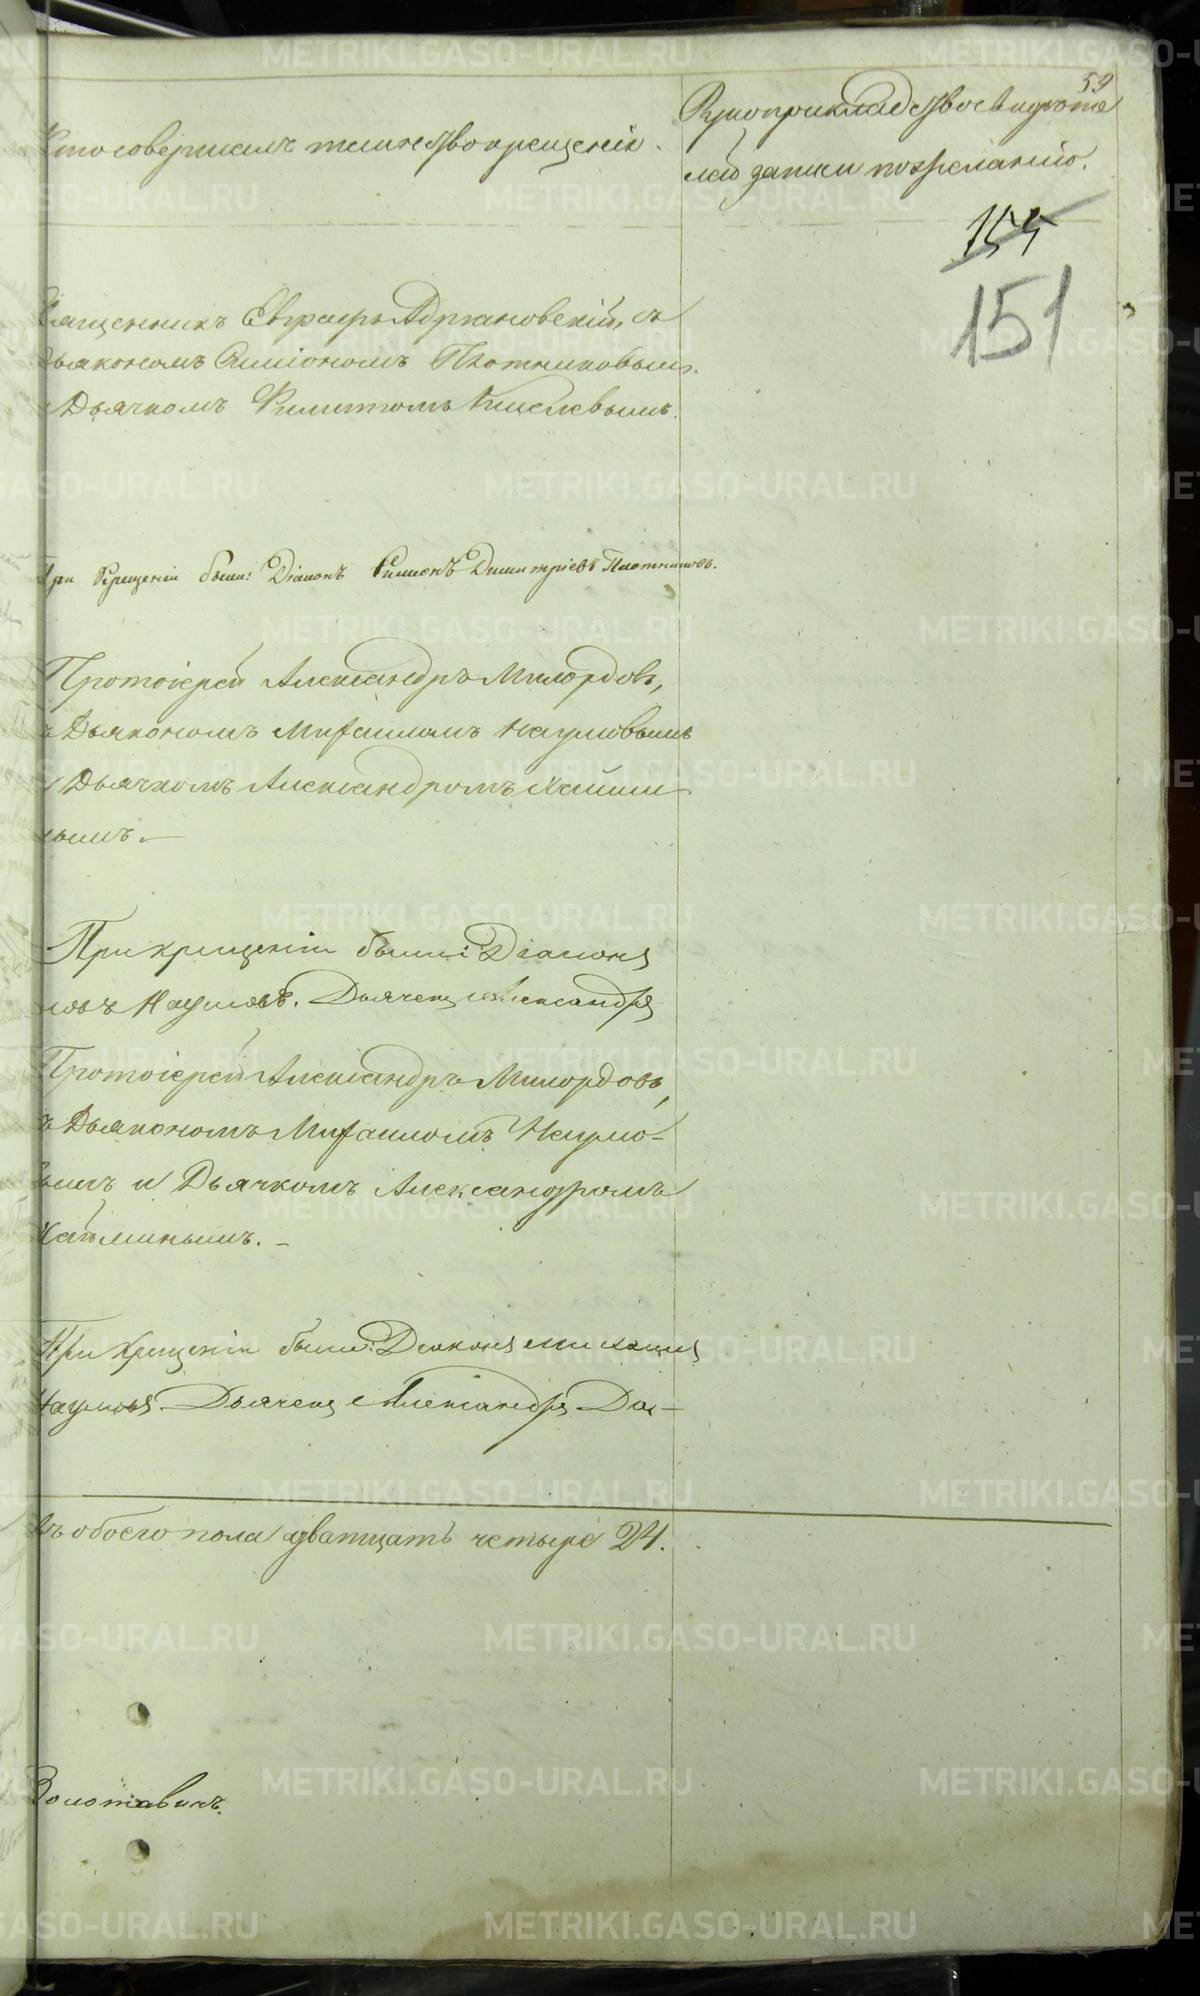 59
Кто совершалъ таинство крещенія.
Рукоприкладство свидѣте
лей записи по желанію.
151
Священникъ Евграфъ Адріановскій, съ
Дьякономъ Симіономъ Плотниковым.
Дьячкомъ Филиппомъ Киселевымъ.
При Крещеніи были: Діаконъ Симеонъ Димитріевъ Плотниковъ.
Протоіерей Александръ Милордовъ,
съ Дьякономъ Михаиломъ Наумовымъ
и Дьячкомъ Александромъ
нымъ.
При крещеніи были: Діаконъ
Наумовъ. Дьячекъ Александръ
Протоіерей Александръ Милордовъ,
съ Дьякономъ Михаиломъ Наумо-
вымъ и Дьячкомъ Александромъ
При Крещеніи были: Діаконъ Михаилъ
Наумовъ. Дьячекъ Александръ
обоего пола дватцать четыре 24.
Золотавинъ.
METRIKI.GASO-URAL.RU